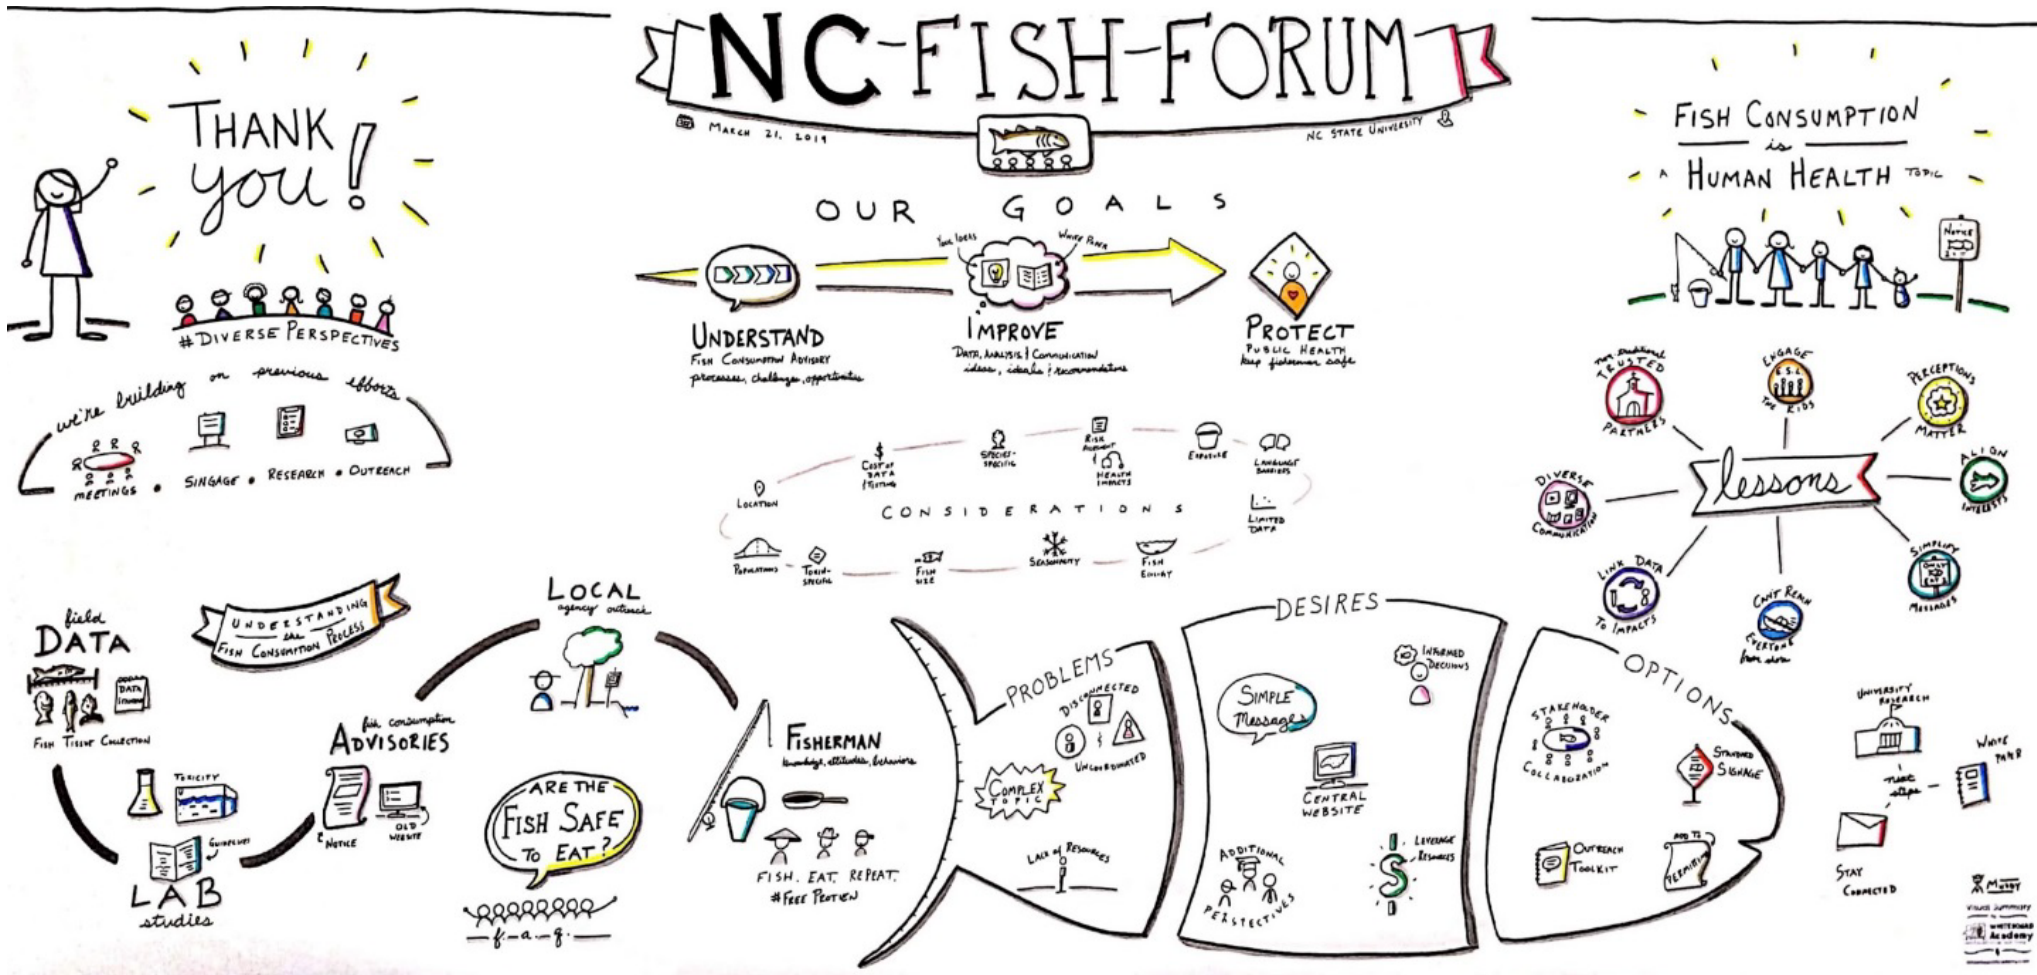 NC-FISH-FORUM
MARCH 21, 2019
NC STATE UNIVERSITY
THANK
you!
#DIVERSE PERSPECTIVES
we're building on previous efforts
MEETINGS • SINGAGE • RESEARCH • OUTREACH
OUR GOALS
YOUR IDEAS
WHITE PAPER
UNDERSTAND
FISH CONSUMPTION ADVISORY
processes, challenges, opportunities
IMPROVE
DATA, ANALYSIS & COMMUNICATION
ideas, ideals & recommendations
PROTECT
PUBLIC HEALTH
keep fisherman safe
CONSIDERATIONS
LOCATION
COST OF
DATA
& TESTING
SPECIES-
SPECIFIC
RISK
ASSESSMENT
&
HEALTH
IMPACTS
EXPOSURE
LANGUAGE
BARRIERS
LIMITED
DATA
FISH
SEASONALITY
FISH
SIZE
TOXIN-
SPECIFIC
POPULATIONS
FISH CONSUMPTION
is
A HUMAN HEALTH TOPIC
NOTICE
lessons
non-traditional
TRUSTED
PARTNERS
ENGAGE
E.S.L.
THE KIDS
PERCEPTIONS
MATTER
ALIGN
INTERESTS
SIMPLIFY
MESSAGES
CAN'T REACH
EVERYONE
from shore
LINK DATA
TO IMPACTS
DIVERSE
COMMUNICATION
UNDERSTANDING
the
FISH CONSUMPTION PROCESS
field
DATA
DATA
FISH TISSUE COLLECTION
TOXICITY
GUIDELINES
LAB
studies
fish consumption
ADVISORIES
NOTICE
OLD
WEBSITE
LOCAL
agency outreach
ARE THE
FISH SAFE
TO EAT?
f.a.q.
FISHERMAN
knowledge, attitudes, behaviors
FISH. EAT. REPEAT.
#FREE PROTIEN
PROBLEMS
DISCONNECTED
&
UNCOORDINATED
COMPLEX
TOPIC
LACK of RESOURCES
DESIRES
SIMPLE
Messages
INFORMED
DECISIONS
CENTRAL
WEBSITE
ADDITIONAL
PERSPECTIVES
LEVERAGE
RESOURCES
OPTIONS
STAKEHOLDER
COLLABORATION
STANDARD
SIGNAGE
OUTREACH
TOOLKIT
ADD TO
UNIVERSITY
RESEARCH
WHITE
PAPER
next
steps
STAY
CONNECTED
VISUAL SUMMARY
WHITEBOARD
Academy